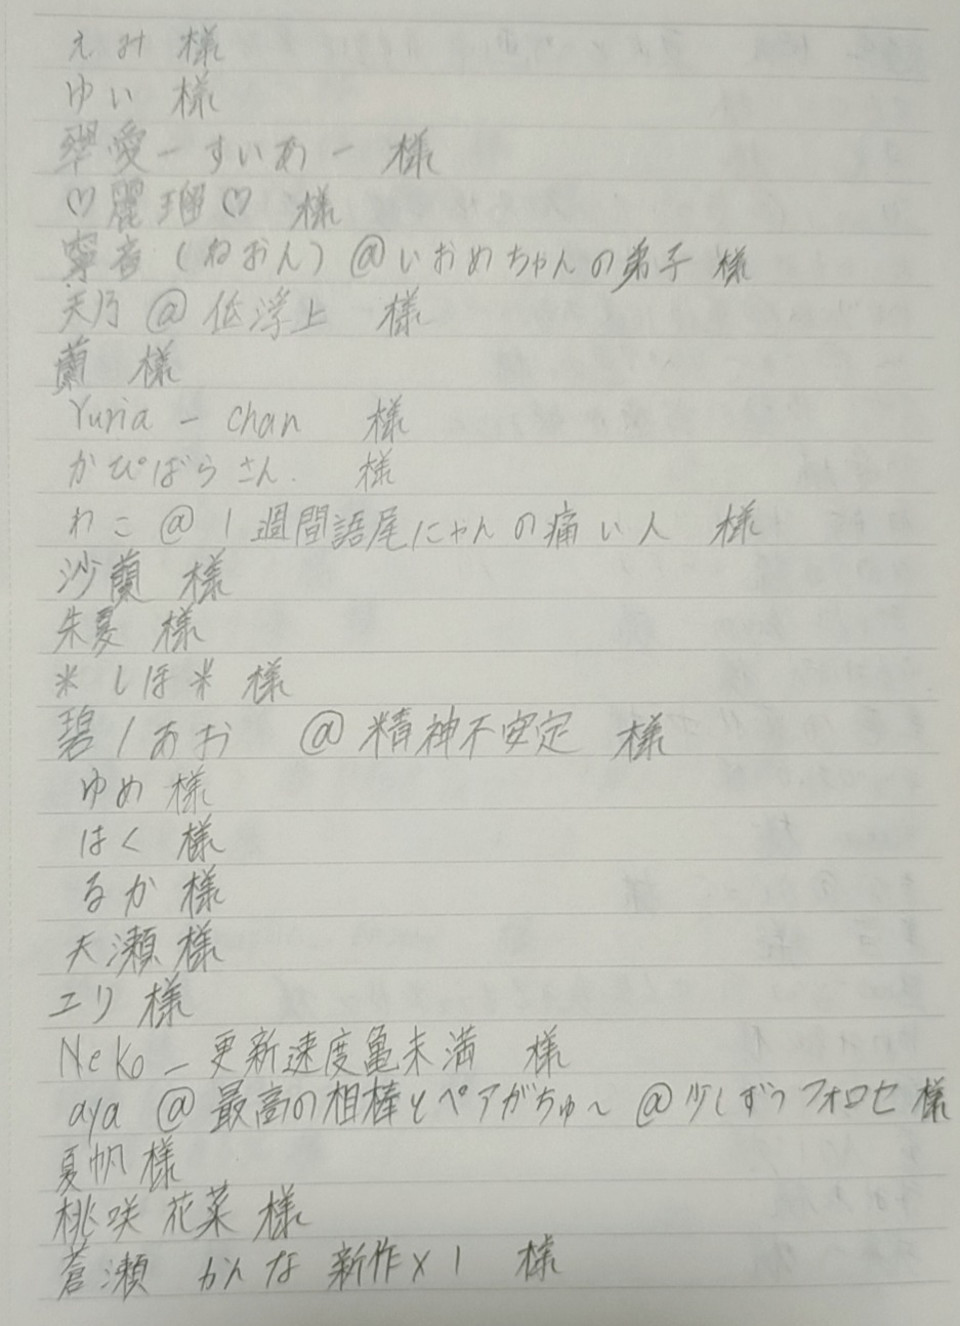 えみ 様
ゆい 様
翠愛 ー すいあ ー 様
♡麗瑠♡ 様
寧音 (ねおん) @いおめちゃんの弟子 様
天乃 @ 低浮上 様
蘭 様
Yuria - chan 様
かぴばら さん. 様
わこ @ 1週間語尾にゃんの痛い人 様
沙蘭 様
朱夏 様
* しほ * 様
碧 / あお @ 精神不安定 様
ゆめ 様
はく 様
るか 様
天瀬 様
エリ 様
Neko _ 更新速度亀未満 様
aya @ 最高の相棒とペアがちゅ〜 @ 少しずつフォロセ 様
夏帆 様
桃咲 花菜 様
蒼瀬 かんな 新作×1 様